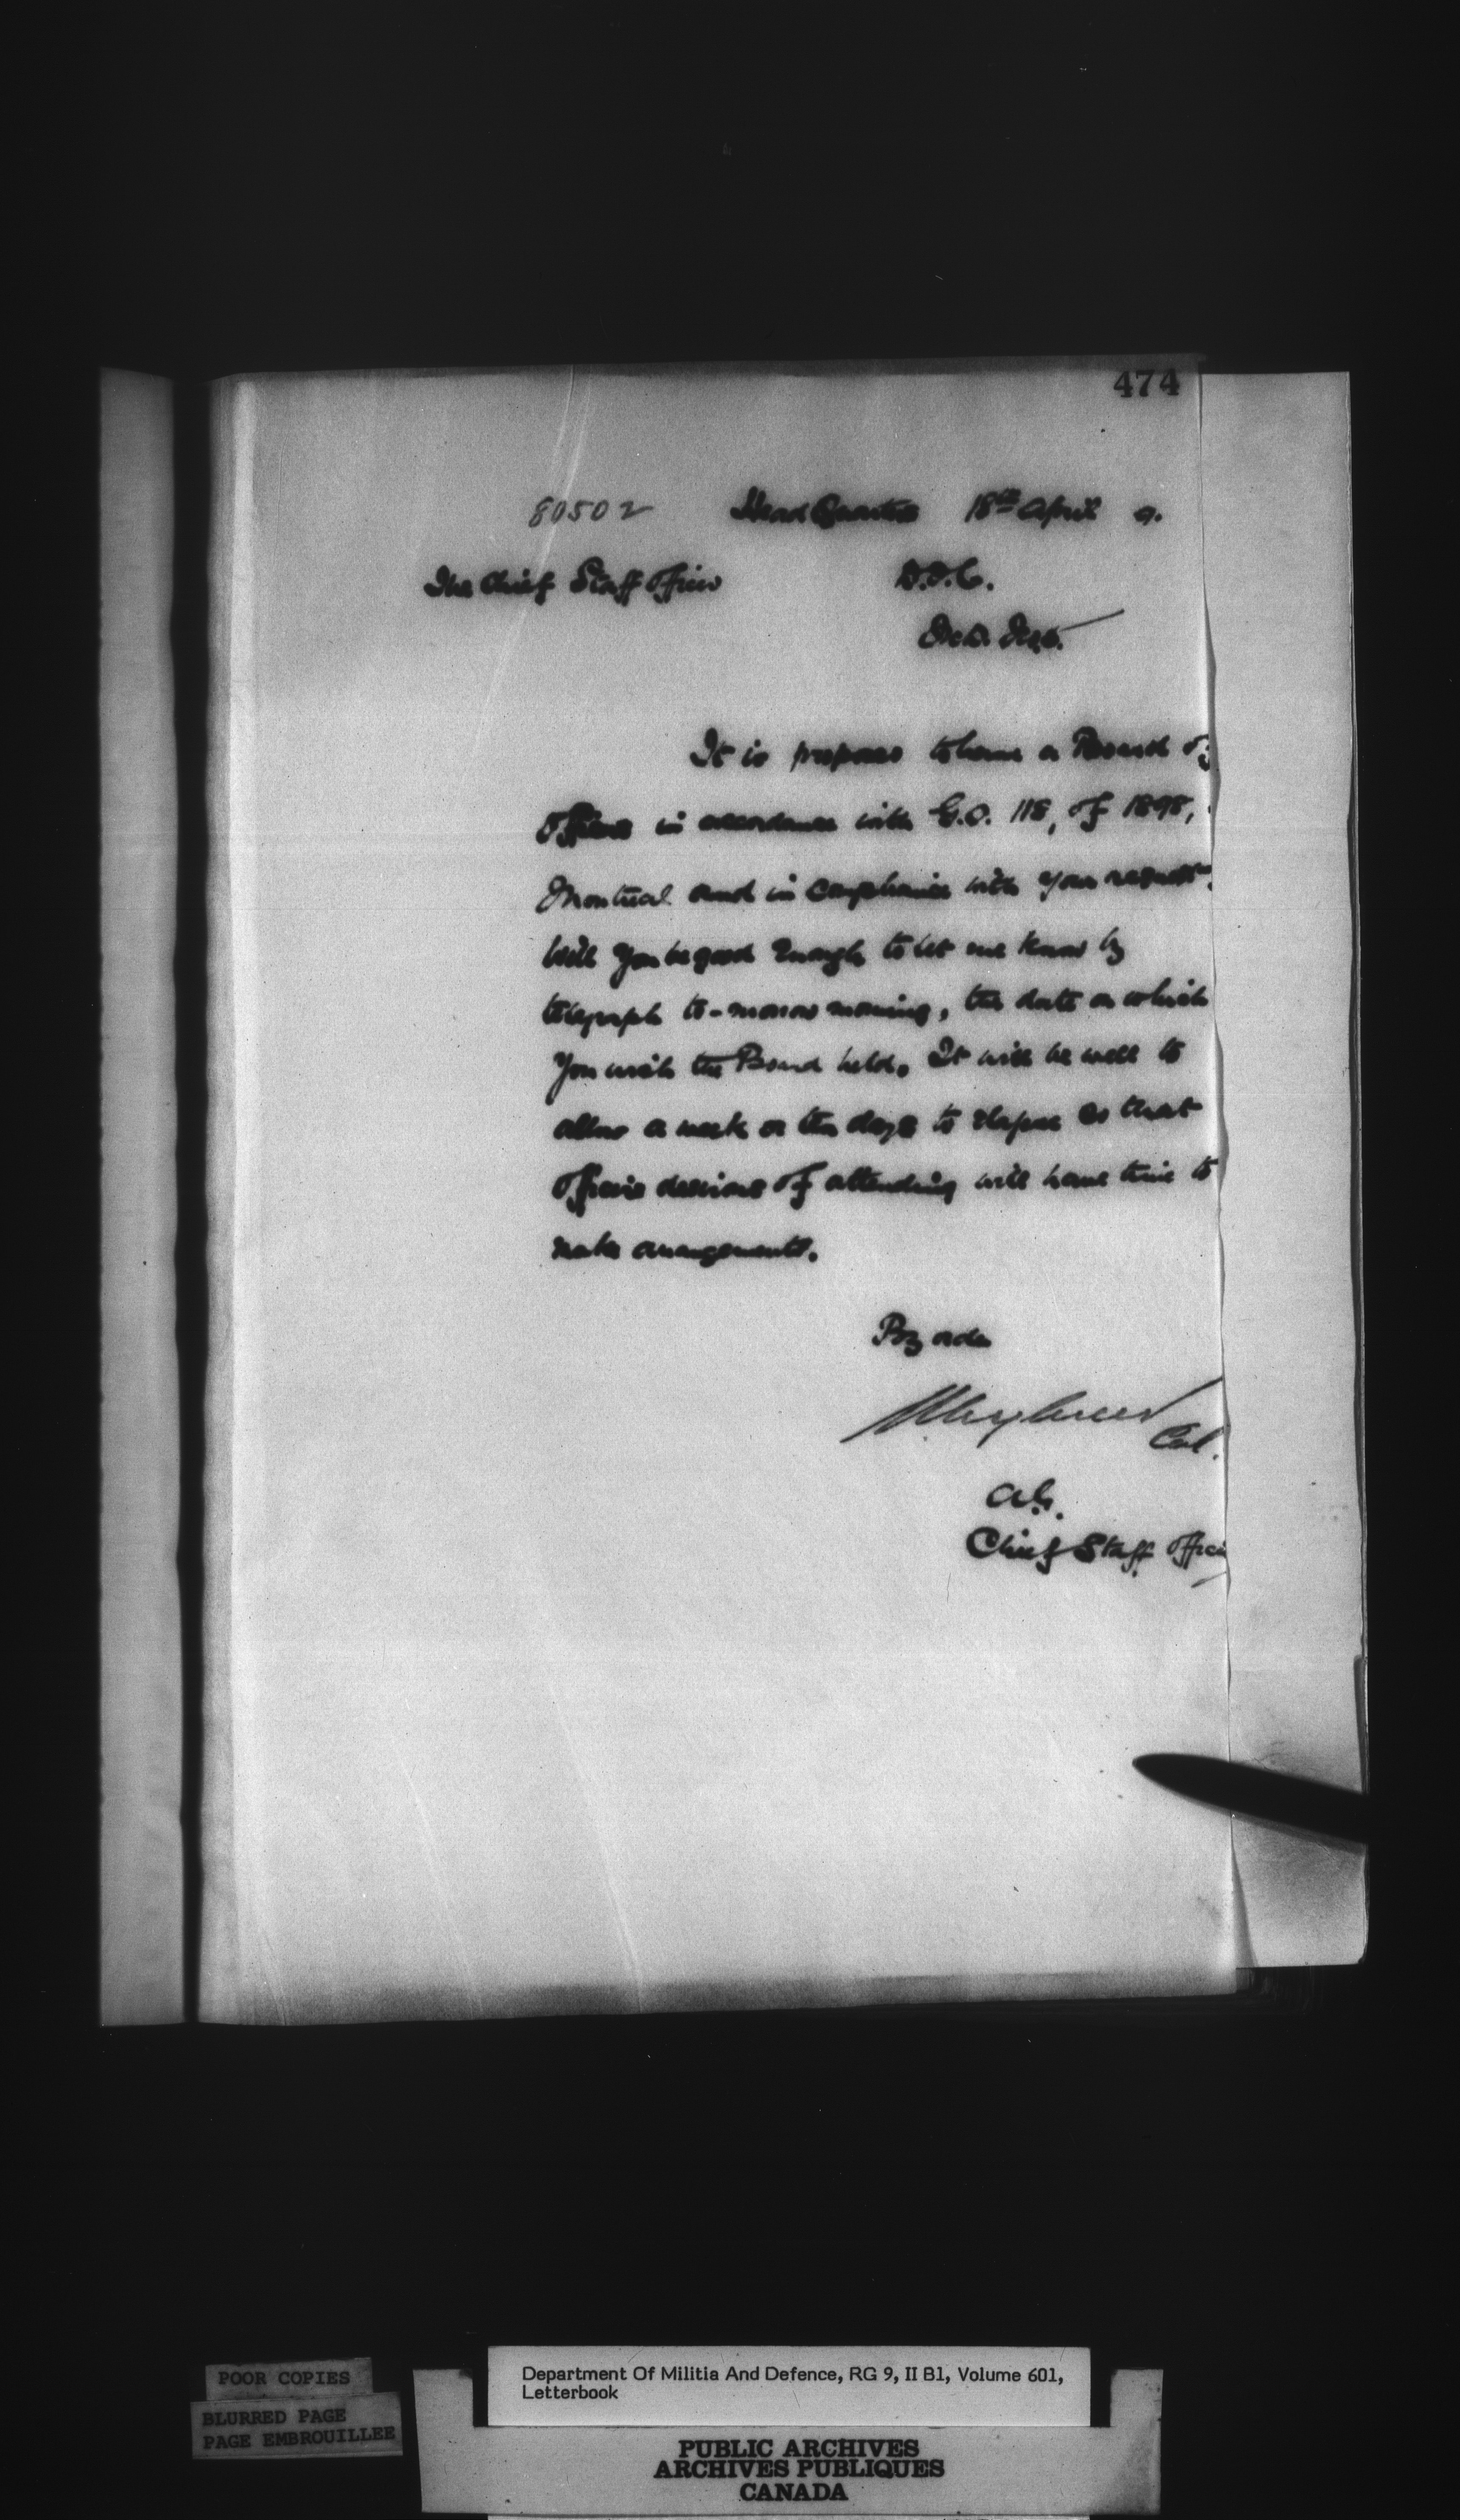 474
80502 Head Quarters 18th April 9.
The Chief Staff Officer
It is proposed to have a Board of
Officers in accordance with G.O. 118, of 1898,
Montreal and in compliance with your request.
Will you be good enough to let me know by
telegraph to-morrow morning, the date on which
you wish the Board held. It will be well to
allow a week or ten days to elapse so that
Officers desirous of attending will have time to
make arrangements.
By order
Col.
A.G.
Chief Staff Officer
POOR COPIES
BLURRED PAGE
PAGE EMBROUILLEE
Department Of Militia And Defence, RG 9, II B1, Volume 601,
Letterbook
PUBLIC ARCHIVES
ARCHIVES PUBLIQUES
CANADA